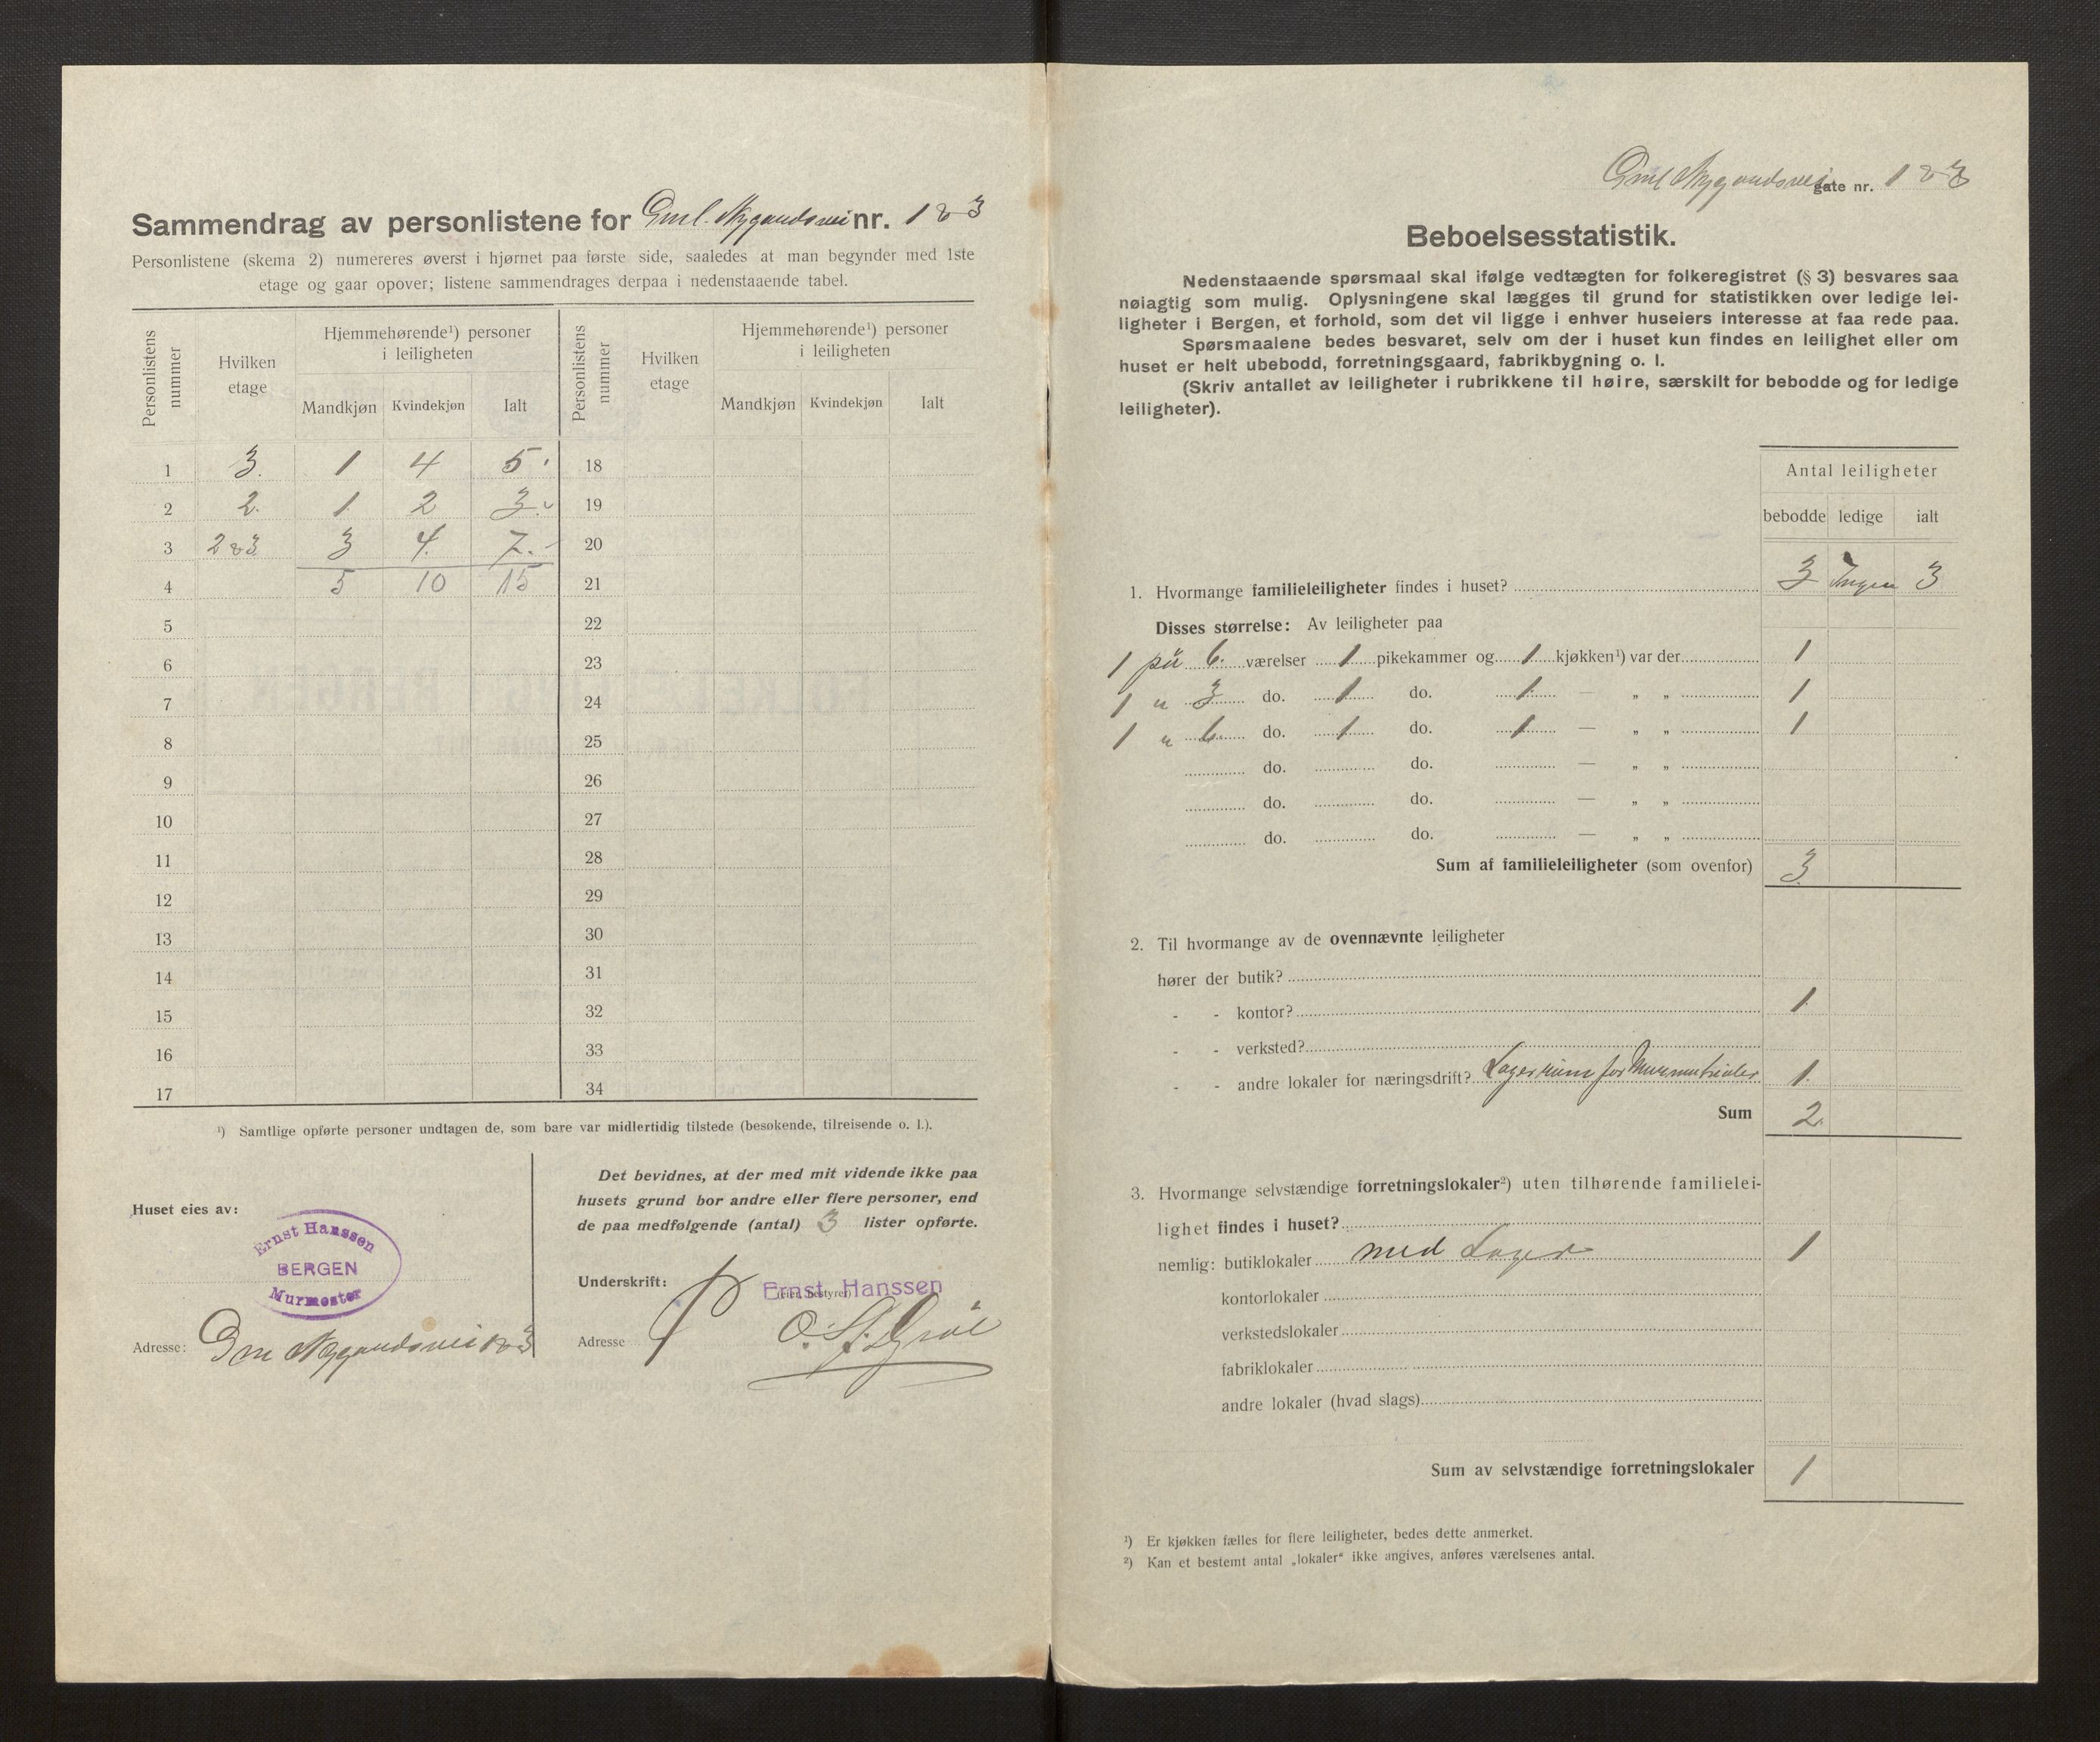 Sammendrag av personlistene for Gml. Nygaardsvei nr. 1 & 3
Personlistene (skema 2) numereres øverst i hjørnet paa første side, saaledes at man begynder med 1ste
etage og gaar opover; listene sammendrages derpaa i nedenstaaende tabel.
Personlistens nummer Hvilken etage Hjemmehørende¹) personer i leiligheten Mandkjøn Kvindekjøn Ialt
Personlistens nummer Hvilken etage Hjemmehørende¹) personer i leiligheten Mandkjøn Kvindekjøn Ialt
1 3. 1 4 5 18
2 2. 1 2 3. 19
3 2 & 3 3 4. 7. 20
4 5 10 15 21
5 22
6 23
7 24
8 25
9 26
10 27
11 28
12 29
13 30
14 31
15 32
16 33
17 34
¹) Samtlige opførte personer undtagen de, som bare var midlertidig tilstede (besøkende, tilreisende o. l.).
Huset eies av:
Ernst Hanssen
BERGEN
Murmester
Adresse: Gml Nygaardsvei 1 & 3
Det bevidnes, at der med mit vidende ikke paa
husets grund bor andre eller flere personer, end
de paa medfølgende (antal) 3 lister opførte.
Underskrift: Ernst Hanssen
(Eier, bestyrer)
Adresse
Gml Nygaardsvei gate nr. 1 & 3
Beboelsesstatistik.
Nedenstaaende spørsmaal skal ifølge vedtægten for folkeregistret (§ 3) besvares saa
nøiagtig som mulig. Oplysningene skal lægges til grund for statistikken over ledige lei-
ligheter i Bergen, et forhold, som det vil ligge i enhver huseiers interesse at faa rede paa.
Spørsmaalene bedes besvaret, selv om der i huset kun findes en leilighet eller om
huset er helt ubebodd, forretningsgaard, fabrikbygning o. l.
(Skriv antallet av leiligheter i rubrikkene til høire, særskilt for bebodde og for ledige
leiligheter).
Antal leiligheter
bebodde ledige ialt
1. Hvormange familieleiligheter findes i huset? 3 Ingen 3
Disses størrelse: Av leiligheter paa
1 på 6. værelser 1 pikekammer og 1 kjøkken¹) var der 1
1 " 3 do. 1 do. 1 — „ „ 1
1 " 6. do. 1 do. 1 — „ „ 1
do. do. — „ „
do. do. — „ „
do. do. — „ „
Sum af familieleiligheter (som ovenfor) 3
2. Til hvormange av de ovennævnte leiligheter
hører der butik?
- - kontor? 1
- - verksted?
- - andre lokaler for næringsdrift? Lagerrum for Murmatrialer 1.
Sum 2.
3. Hvormange selvstændige forretningslokaler²) uten tilhørende familielei-
lighet findes i huset?
nemlig: butiklokaler med Lager 1
kontorlokaler
verkstedslokaler
fabriklokaler
andre lokaler (hvad slags)
Sum av selvstændige forretningslokaler 1
¹) Er kjøkken fælles for flere leiligheter, bedes dette anmerket.
²) Kan et bestemt antal „lokaler" ikke angives, anføres værelsenes antal.